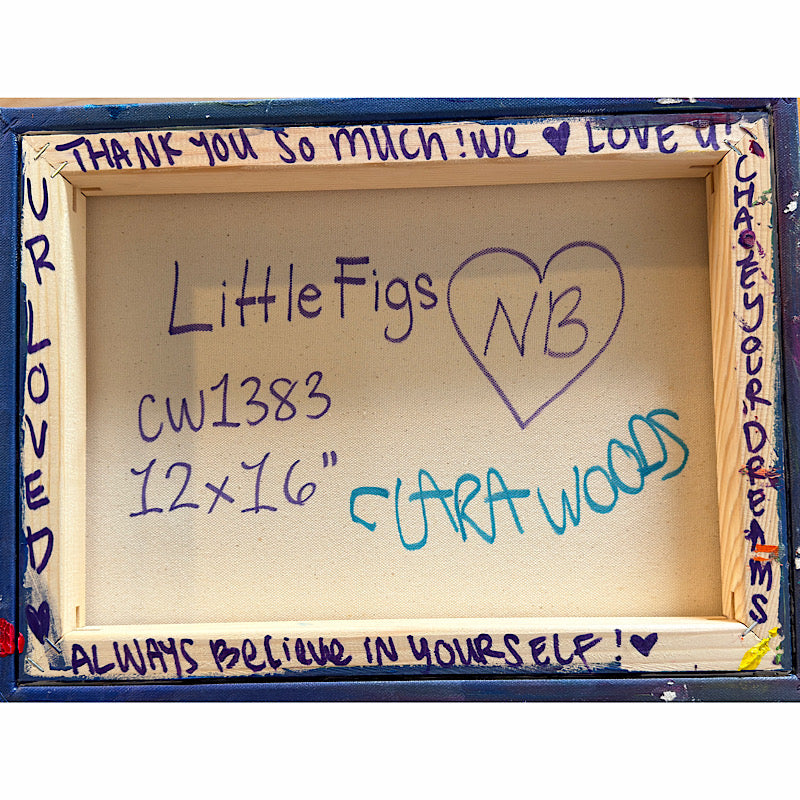 THANK YOU SO MUCH! WE ♥ LOVE U!
U R LOVED ♥
Little Figs
NB
CW1383
12x16"
CLARA WOODS
CHASE YOUR DREAMS
ALWAYS BELIEVE IN YOURSELF! ♥